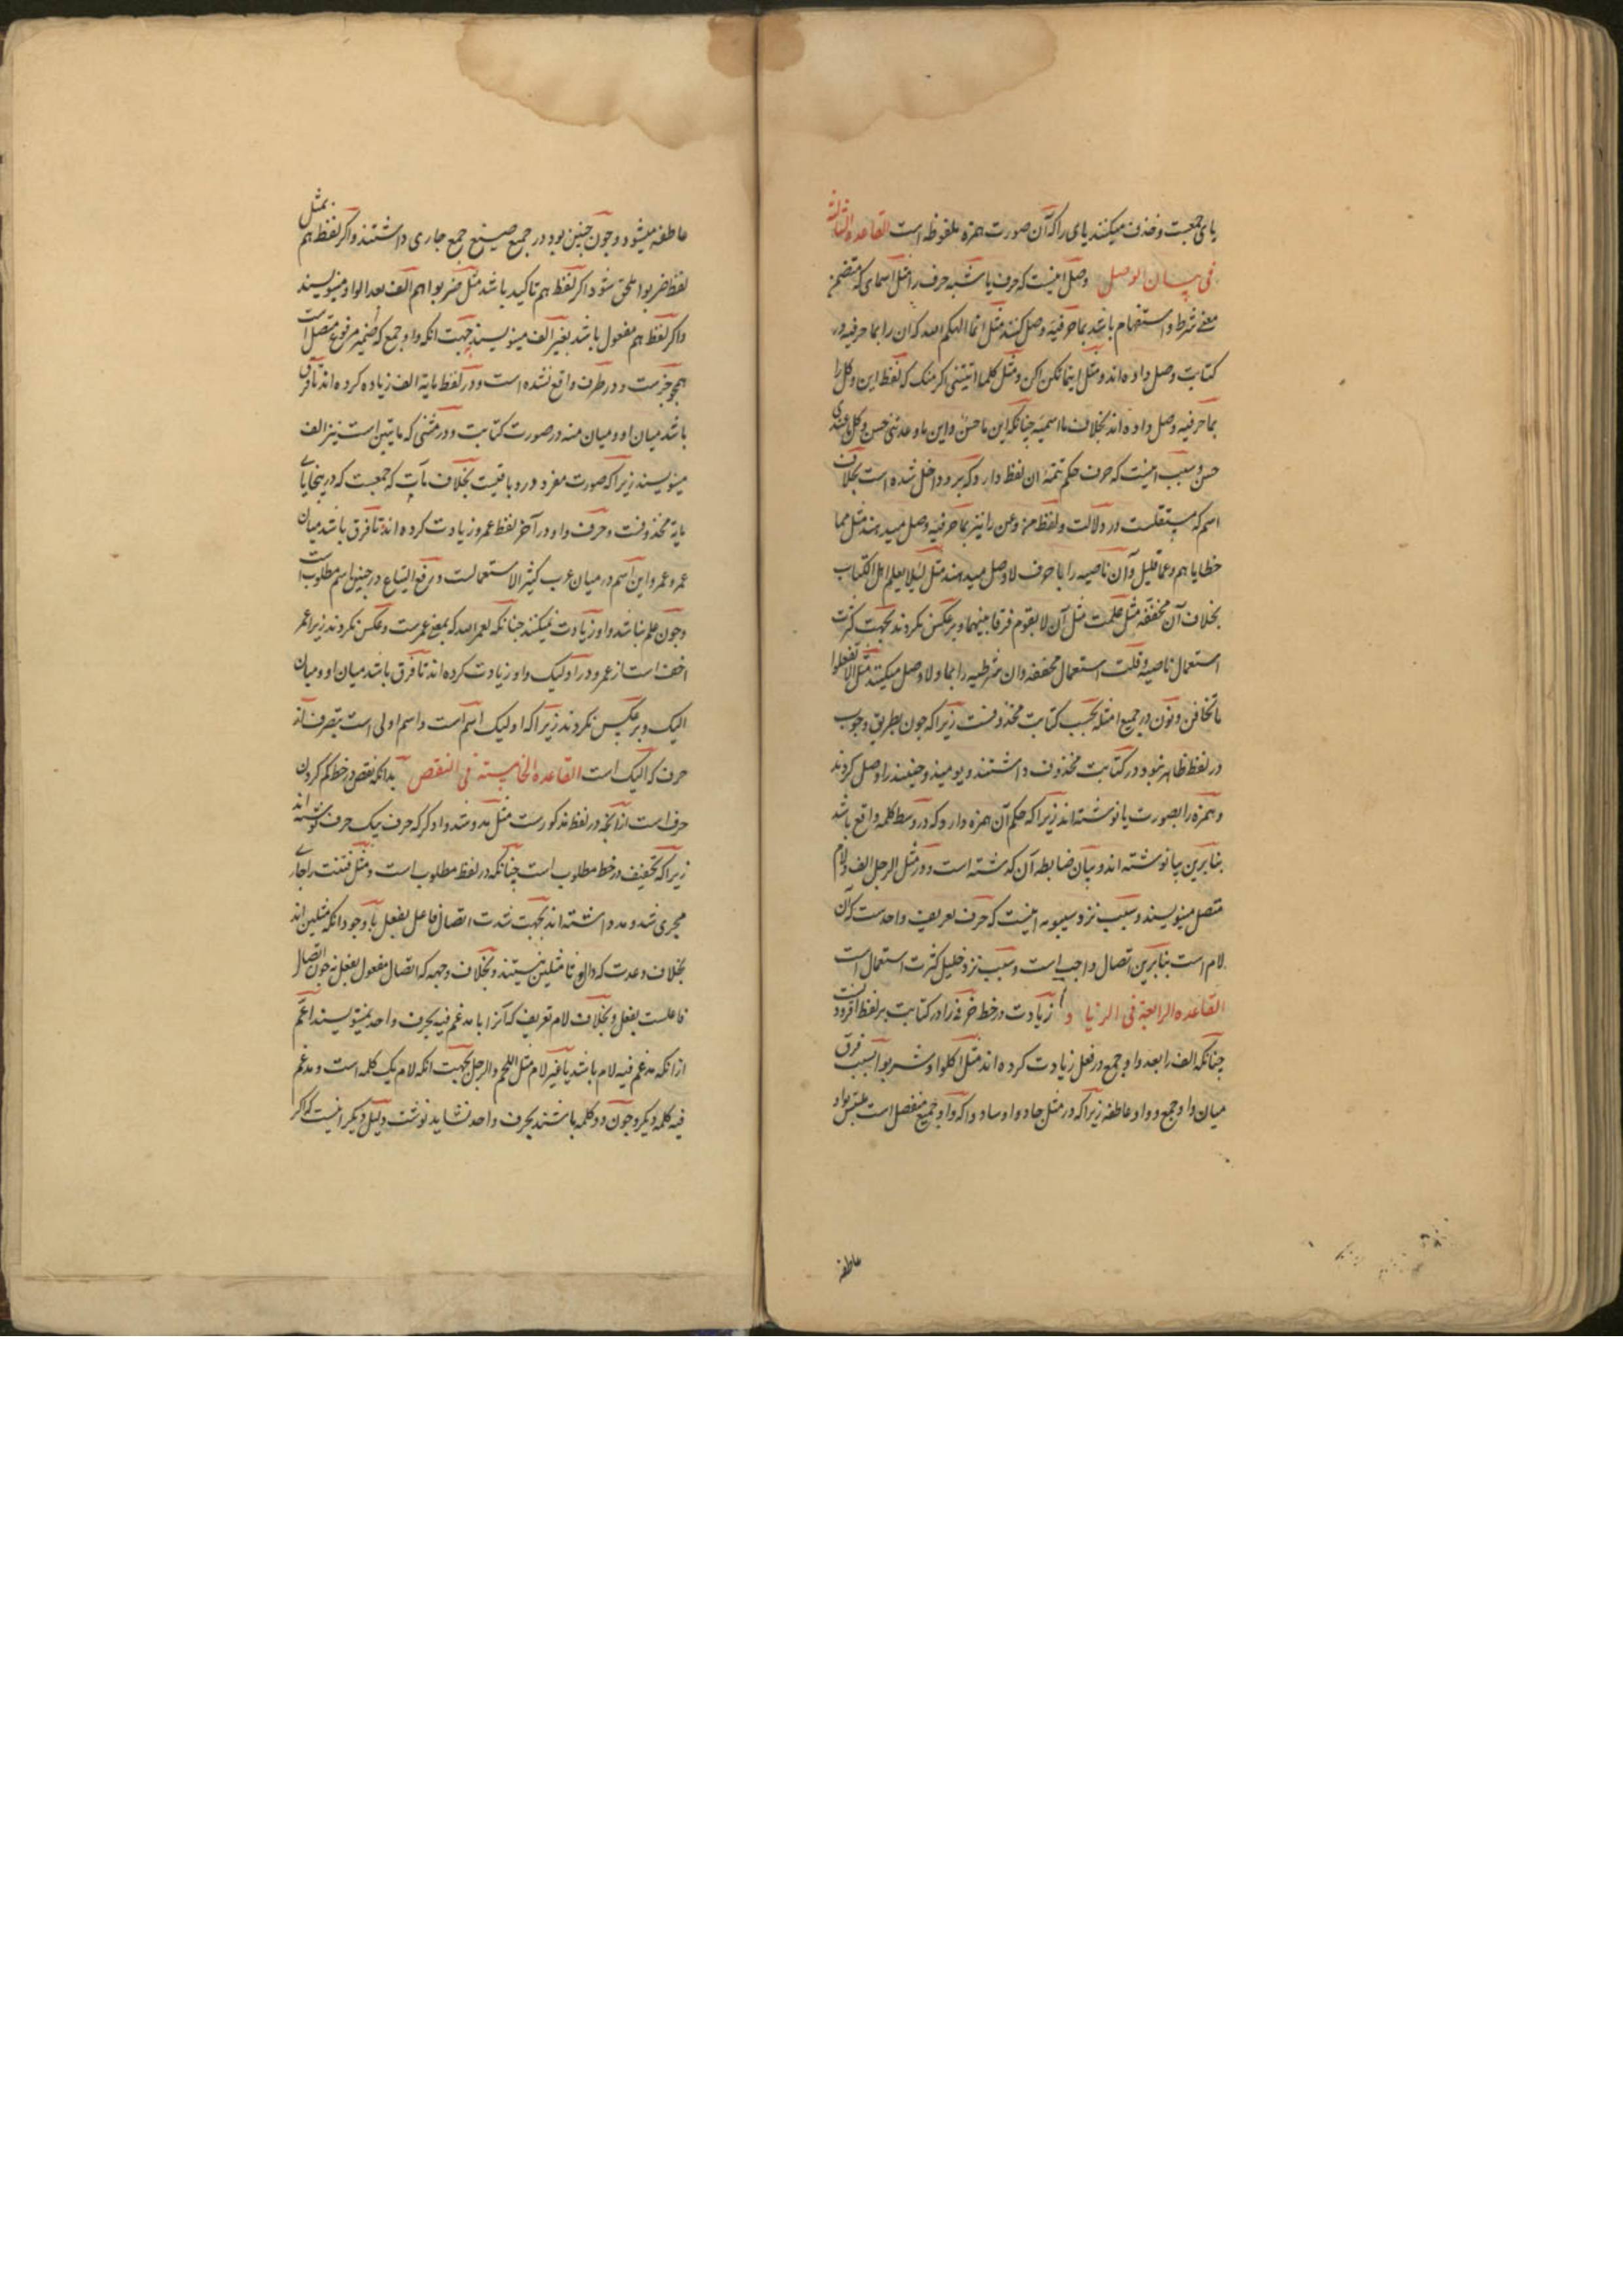 یای جمعیت و حذف میکنند یای را که آن صورت همزه ملفوظه است القاعده الثالثة
فی بیان الوصل وصل اینست که حرف یا شبه حرف را مثل اسمای که متضمن
معنی شرط و استفهام باشد بما حرفیه وصل کنند مثل انما الهکم الله که ان را بما حرفیه در
کتابت وصل داده اند و مثل اینما تکن اکن و مثل کلما اتیتنی اکرمتک که لفظ این و کل را
بما حرفیه وصل داده اند بخلاف ما اسمیه چنانکه این ما حسن و این ما وعدتنی حسن و کل ما عندی
حسن و سبب اینست که حرف حکم تتمه ان لفظ دارد که برو داخل شده است بخلاف
اسم که مستقلست در دلالت و لفظ من و عن را نیز بما حرفیه وصل میدهند مثل مما
خطایاهم و عما قلیل و آن ناصبه را با حرف لا وصل میدهند مثل لئلا یعلم اهل الکتاب
بخلاف آن مخففه مثل علمت مثل آن لا یقوم فرقا بینهما و بر عکس نکردند بجهت کثرت
استعمال ناصبه و قلت استعمال مخففه و ان شرطیه را بما و لا وصل میکنند مثل الا تفعلوا
ما تخافن و نون در جمیع امثله بحسب کتابت محذوفست زیرا که چون بطریق وجوب
در لفظ ظاهر نبود در کتابت محذوف داشتند و یومئذ و حینئذ را وصل کردند
و همزه را بصورت یا نوشته اند زیرا که حکم آن همزه دارد که در وسط کلمه واقع باشد
بنابرین بیا نوشته اند و بیان ضابطه آن گذشته است و در مثل الرجل الف و لام
متصل مینویسند و سبب نزد سیبویه اینست که حرف تعریف واحدست که آن
لام است بنابرین اتصال واجب است و سبب نزد خلیل کثرت استعمال است
القاعده الرابعة فی الزیاد زیادت در خط حرفی را در کتابت بر لفظ افزودنست
چنانکه الف را بعد واو جمع در فعل زیادت کرده اند مثل اکلوا و شربوا بسبب فرق
میان واو جمع و واو عاطفه زیرا که در مثل جادوا و سادوا که واو جمع منفصل است ملتبس بواو
عاطفه
عاطفه میشود و چون چنین بود در جمیع صیغ جمع جاری داشتند و اگر لفظ هم بمثل
لفظ ضربوا ملحق شود اگر لفظ هم تاکید باشد مثل ضربوا هم الف بعد الواو مینویسند
و اگر لفظ هم مفعول باشد بغیر الف مینویسند بجهت انکه واو جمع که ضمیر مرفوع متصل است
همچو جزست و در طرف واقع نشده است و در لفظ مایة الف زیاده کرده اند تا فرق
باشد میان او و میان منه در صورت کتابت و در مثنی که مایتین است نیز الف
مینویسند زیرا که صورت مفرد درو باقیست بخلاف مآت که جمعست که در ینجا یای
مایه محذوفست و حرف واو در آخر لفظ عمرو زیادت کرده اند تا فرق باشد میان
عمر و عمرو این اسم در میان عرب کثیر الاستعمالست و رفع التباع در چنین اسم مطلوب است
و چون علم نباشد واو زیادت نمیکنند چنانکه لعمر الله که بمعنی عمرست و عکس نکردند زیرا عمر
اخف است از عمرو و در اولیک واو زیادت کرده اند تا فرق باشد میان او و میان
الیک و بر عکس نکردند زیرا که اولیک اسم است و اسم اولی است بتصرف از
حرف که الیک است القاعده الخامسة فی النقص بدانکه نقص در خط کم کردن
حرف است از آنچه در لفظ مذکورست مثل مد و شد و ادکر که حرف بیک حرف نوشته اند
زیرا که تخفیف در خط مطلوب است چنانکه در لفظ مطلوب است و مثل فتنت را جاری
مجری شد و مد داشته اند بجهت شدت اتصال فاعل بفعل با وجود انکه مثلین اند
بخلاف وعدت که دال و تا مثلین نیستند و بخلاف وجهه که اتصال مفعول بفعل نه چون اتصال
فاعلست بفعل و بخلاف لام تعریف که آنرا با مدغم فیه بحرف واحد نمینویسند اعم
از انکه مدغم فیه لام باشد یا غیر لام مثل اللحم و الرجل بجهت انکه لام یک کلمه است و مدغم
فیه کلمه دیگر و چون دو کلمه باشند بحرف واحد نشاید نوشت و دلیل دیگر اینست که اگر